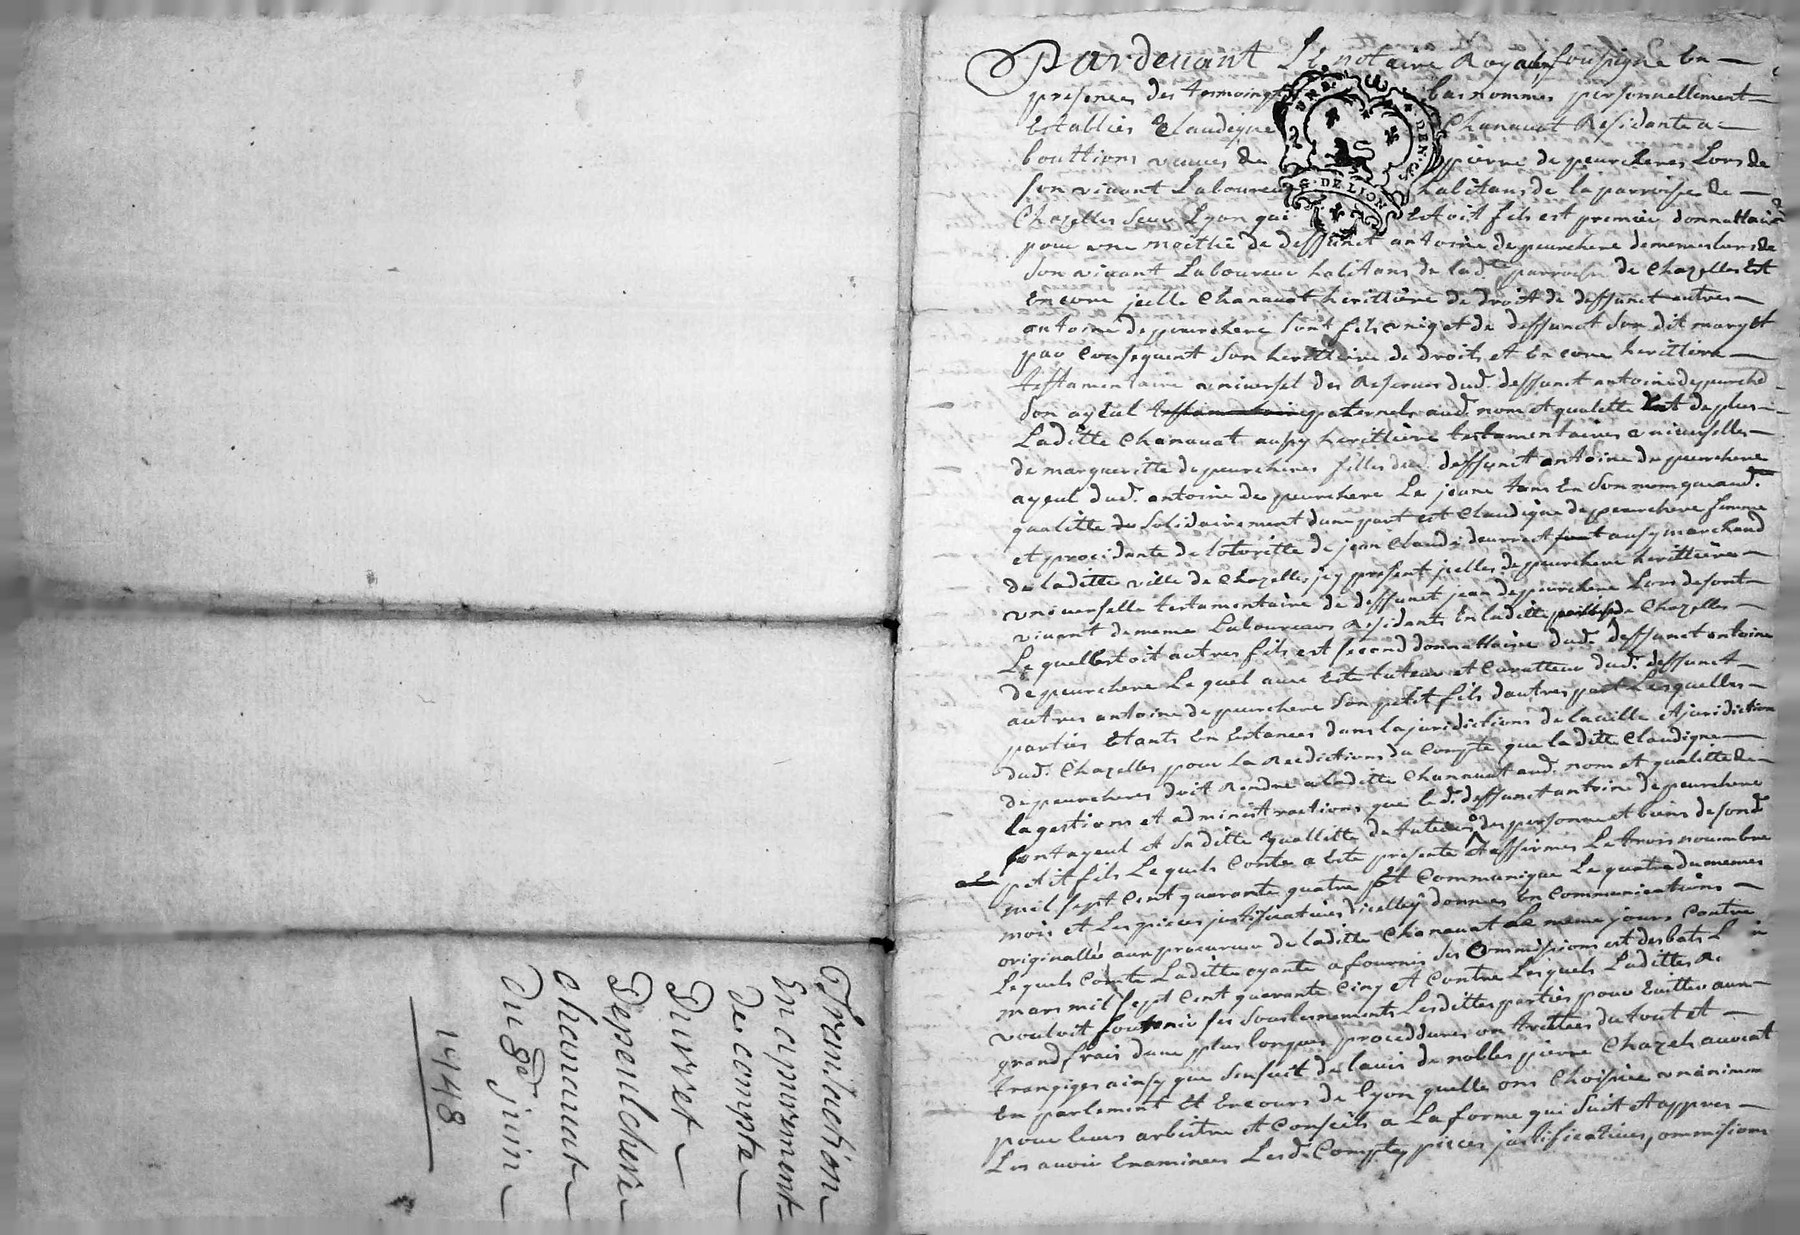 Transaction
En apurement
De compte
Durret
Depeulcherie
chanauat
Du 8e juin
1448
Pardeuant Le notaire Royal sousigne En
presences des temoings bas nommes personnellement
Establies Claudigne Chanauat Residante a
bouttions veuues de pierre de peurcheres Lors de
son viuant Laboureur habitans de la parroisse de
Chazelles Seur Lyon qui Estoit fils est premier donnattaire
pour une moittie de deffunct antoine de peurchere de memes lors de
son viuant Laboureur habitans de lade parroisse de Chazelles Est
Encore jcelle Chanauat herittiere de droit de deffunct autres
antoine de peurchere sont fils uniq et de deffunct Son dit mary Et
par Consequent Son herittiere de droit, et En core herittiere
testamentaire universel des Reserues dud. deffunct antoine de peurche
Son ayeul testamentaire paternel aud. nom et qualitte Est de plus
Laditte Chanauat ausy herittiere testamentaires universelles
de margueritte de peurcheres filles du deffunct antoine de peurchere
ayeul dud. antoine de peurchere Le jeune tant En Son nom que aud.
qualitte de Solidairement dune part est Claudigne de peurchere femme
et procedante de lotoritte de jean Claude durret ausy marchand
de laditte ville de Chazelles jcy present jcelles de peurchere herittiere
universelle testamentaire de deffunct jean de peurchere Lors de sont
viuant de meme Laboureurs Residants En laditte de Chazelles
Le quel Estoit autres fils est second donnattaire dud. deffunct antoine
de peurchere Le quel aure Este tuteur et Curatteur dud. deffunct
autres antoine de peurchere Son petit fils dautres part Lesquelles
parties Etants En Estances dans la juridictions de la ville et juridiction
dud. Chazelles pour La Reedictions du Compte que laditte Claudigne
de peurcheres doit Rendre a laditte Chanauat aud. nom et qualitte de
la gestions et administractions que led. deffunct antoine de peurchere
sont ayeul et Saditte quallitte de tuteur des personne et biens de sond.
petit fils Le quels Conte a Este presente et affirmer Le trois nouembre
mil sept Cent quarante quatre Et Communique Le quatre du memes
mois et Les pieces justificatiues dicelley donnes En Communications
originalle aux procureur de laditte Chanauat Le meme jours Contre
Lequels Conte Laditte oyante a fournis des ommissions est desbats L
mars mil sept Cent quarante Cinq et Contre Lesquels Laditte R
vouloit soutenir ses Soustennements Lesdittes parties pour Euitter aux
grand frais dune plus longues proceddures on trettees du tout et
transiges ainsy que Sensuit de lauis de nobles pierre Chazel auocat
En parlement Et En cours de lyon quelle ons Choisies unanimem
pour leurs arbistre et Conseils a La forme qui Suit et appres
Les auoir Examinees Lesd. Comptes pieces justificatiues, ommisions
G. DE LION